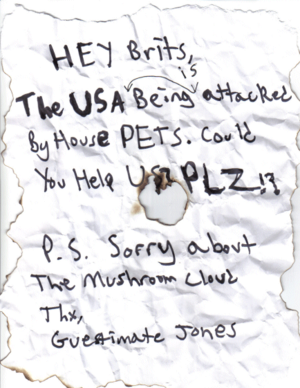 HEY Brits,
is
The USA Being attacked
By House PETS. Could
You Help US PLZ!?
P.S. Sorry about
The Mushroom Cloud
Thx,
Guestimate Jones